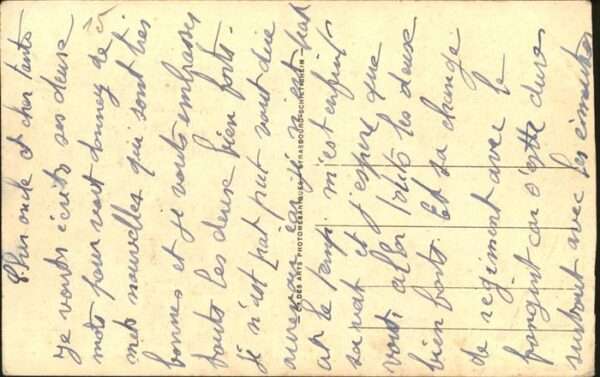 Cher oncle et cher tante
Je vous écrits ses deux
mots pour vous donnez de
mes nouvelles qui sont très
bonnes et je vous embrasses
touts les deux bien forts.
Je n'est pas put vout dire
aurevoir car j'n'est eut
le temp. m'est enfin
sa vat et j'espere que
vous aller touts les deux
bien forts. Et sa change
de regiment avec le
car s'ette dure
surtout avec les
CIE DES ARTS PHOTOMECANIQUES - STRASBOURG-SCHILTIGHEIM